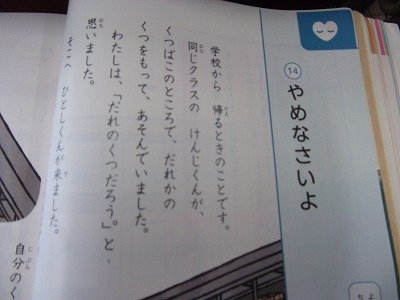 14
やめなさいよ
学校から 帰るときのことです。
かえ
同じクラスの けんじくんが、
おな
くつばこのところで、だれかの
くつをもって、あそんでいました。
わたしは、「だれのくつだろう。」と、
思いました。
おも
そこへ ひとしくんが来ました。
自分のく
じぶん